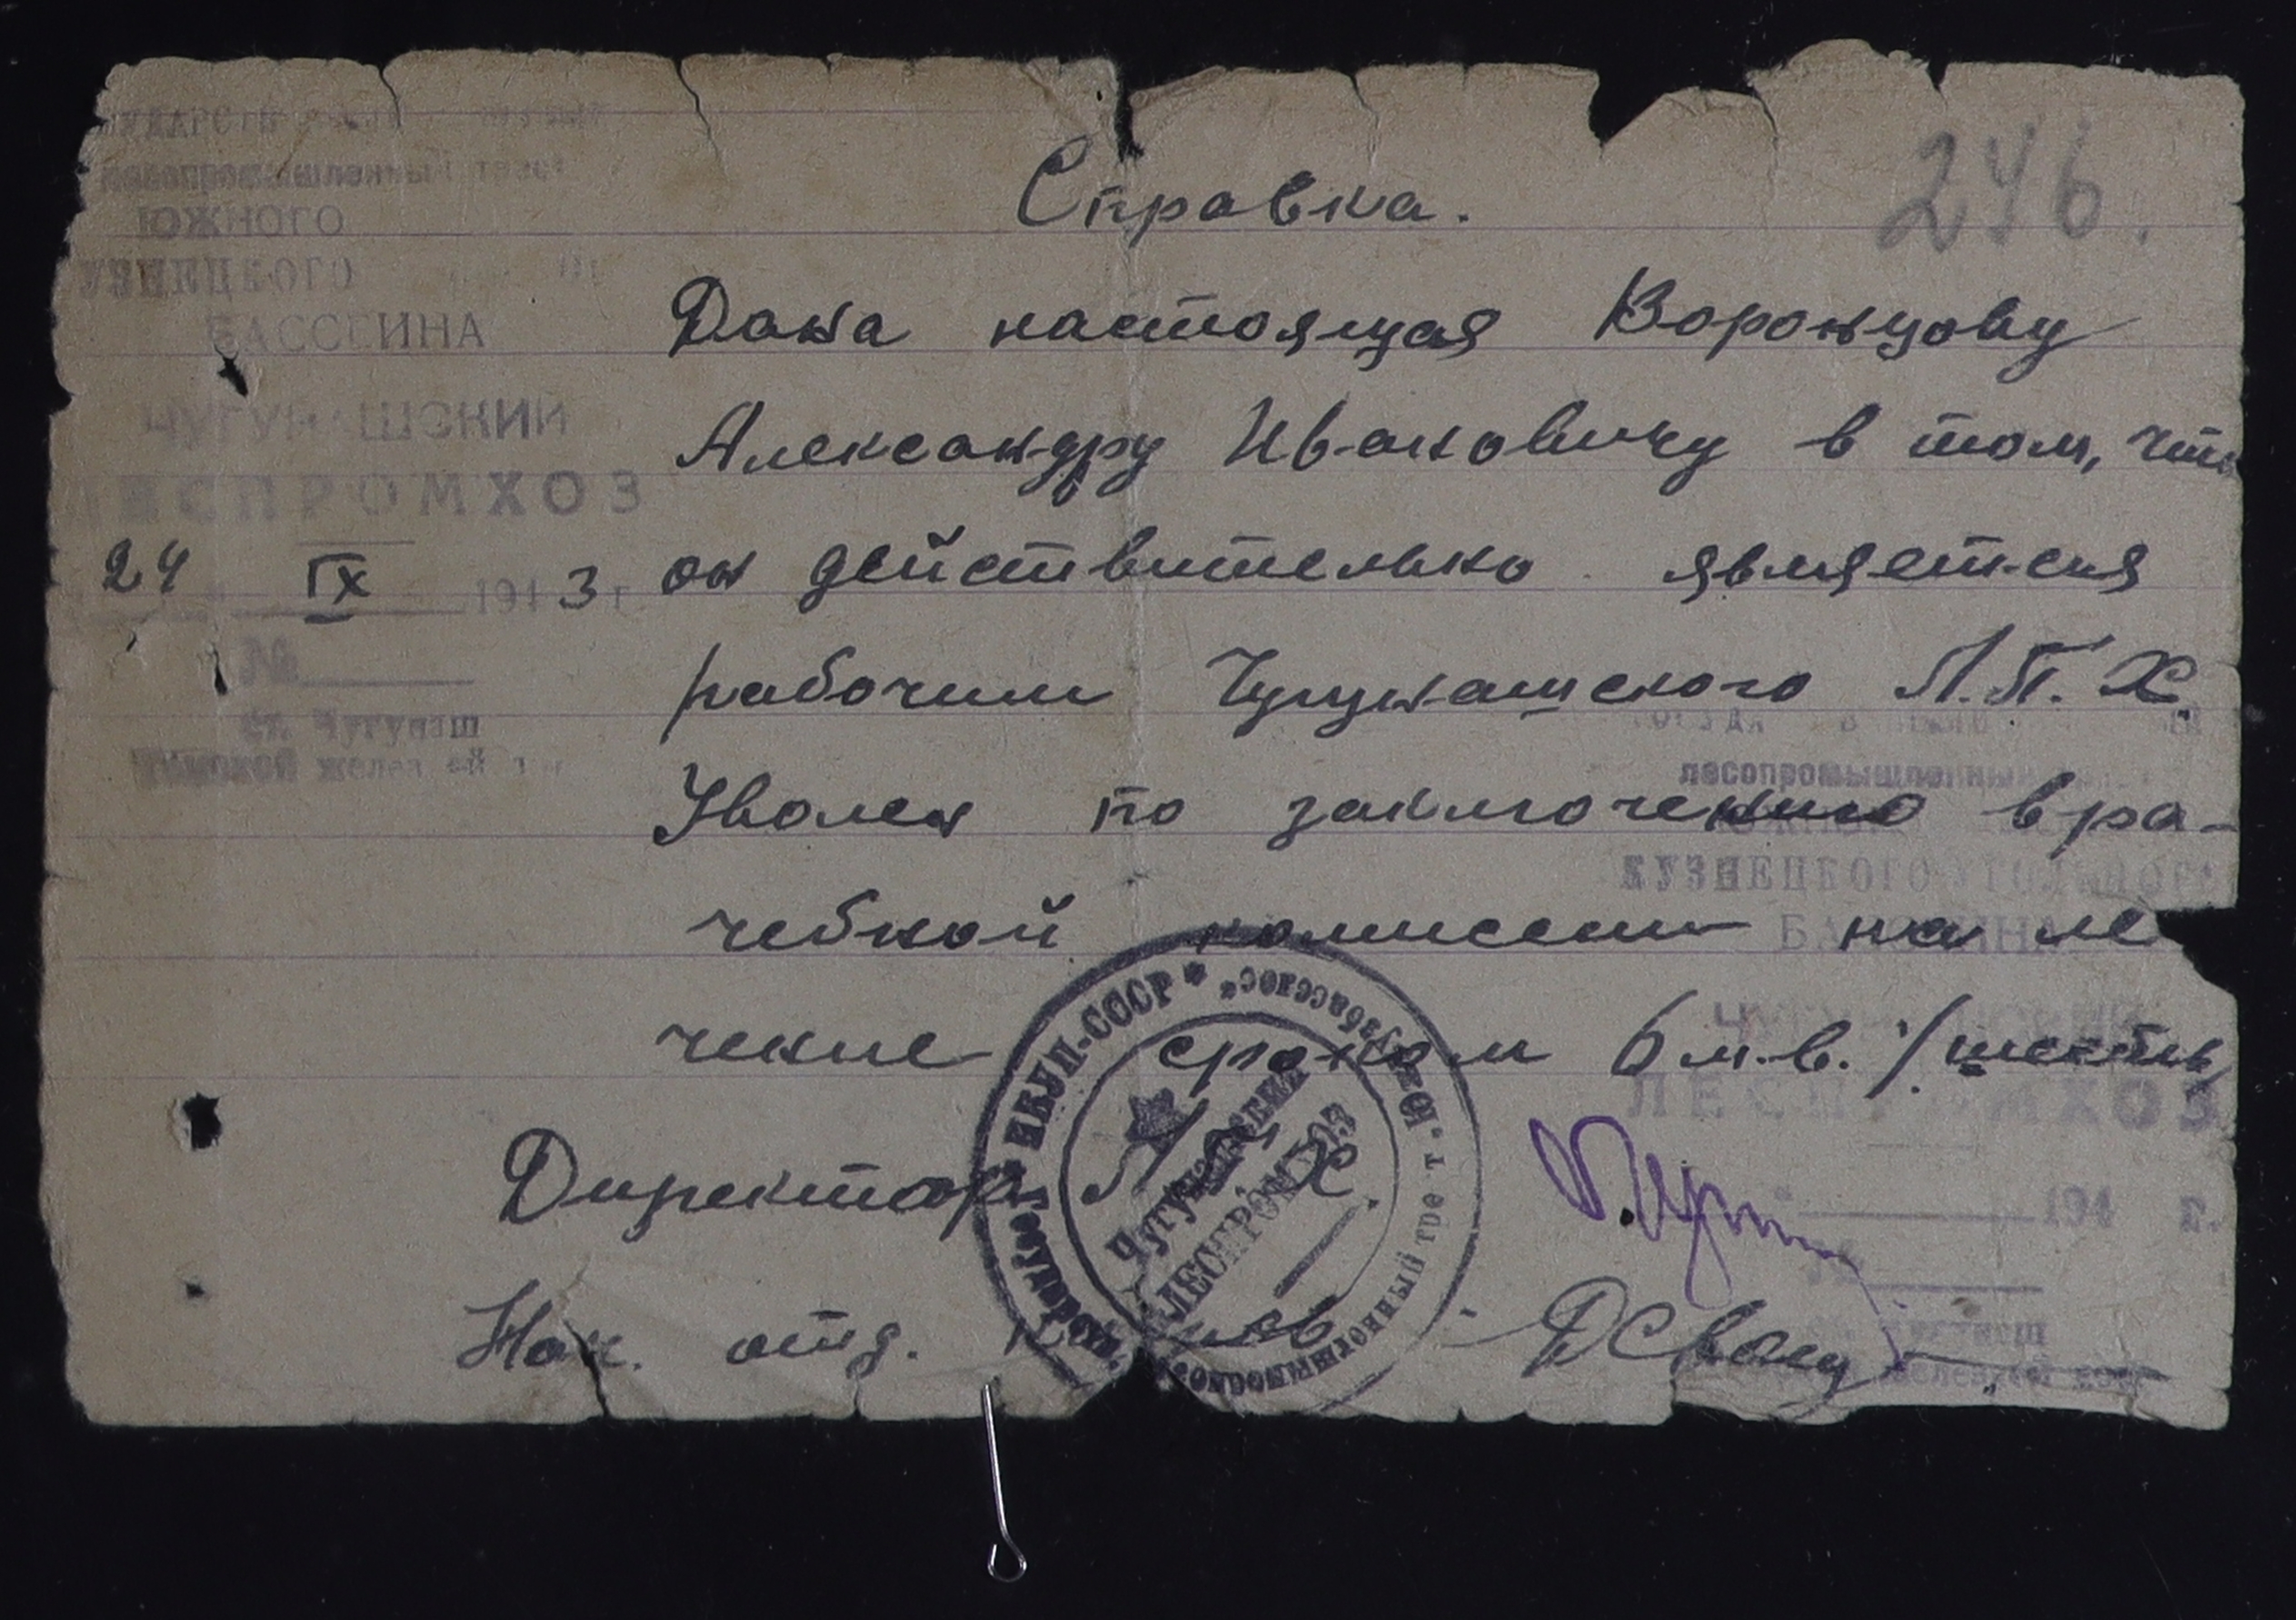 246.
Справка.
лесопромышленный трест
ЮЖНОГО
УЗНЕЦКОГО
БАССЕИНА
ЧУГУНАШСКИЙ
ЛЕСПРОМХОЗ
24 IX 1943 г
№
ст. Чугунаш
Томской желез
Дана настоящая Воронцову
Александру Ивановичу в том, что
он действительно является
рабочим Чугунашского Л.П.Х.
Уволен по заключению вра-
чебной комиссии на ле
чение сроком 6 м-в. /шесть/
Директор Л.П.Х.
Нач. отд.
лесопромышленный
КУЗНЕЦКОГО УГОЛЬНОГО
БАССЕИНА
ЧУГУНАШСКИЙ
ЛЕСПРОМХОЗ
194 г.
№
НКУП-СССР * Южкузбасслес"
Чугунашский
ЛЕСПРОМХОЗ